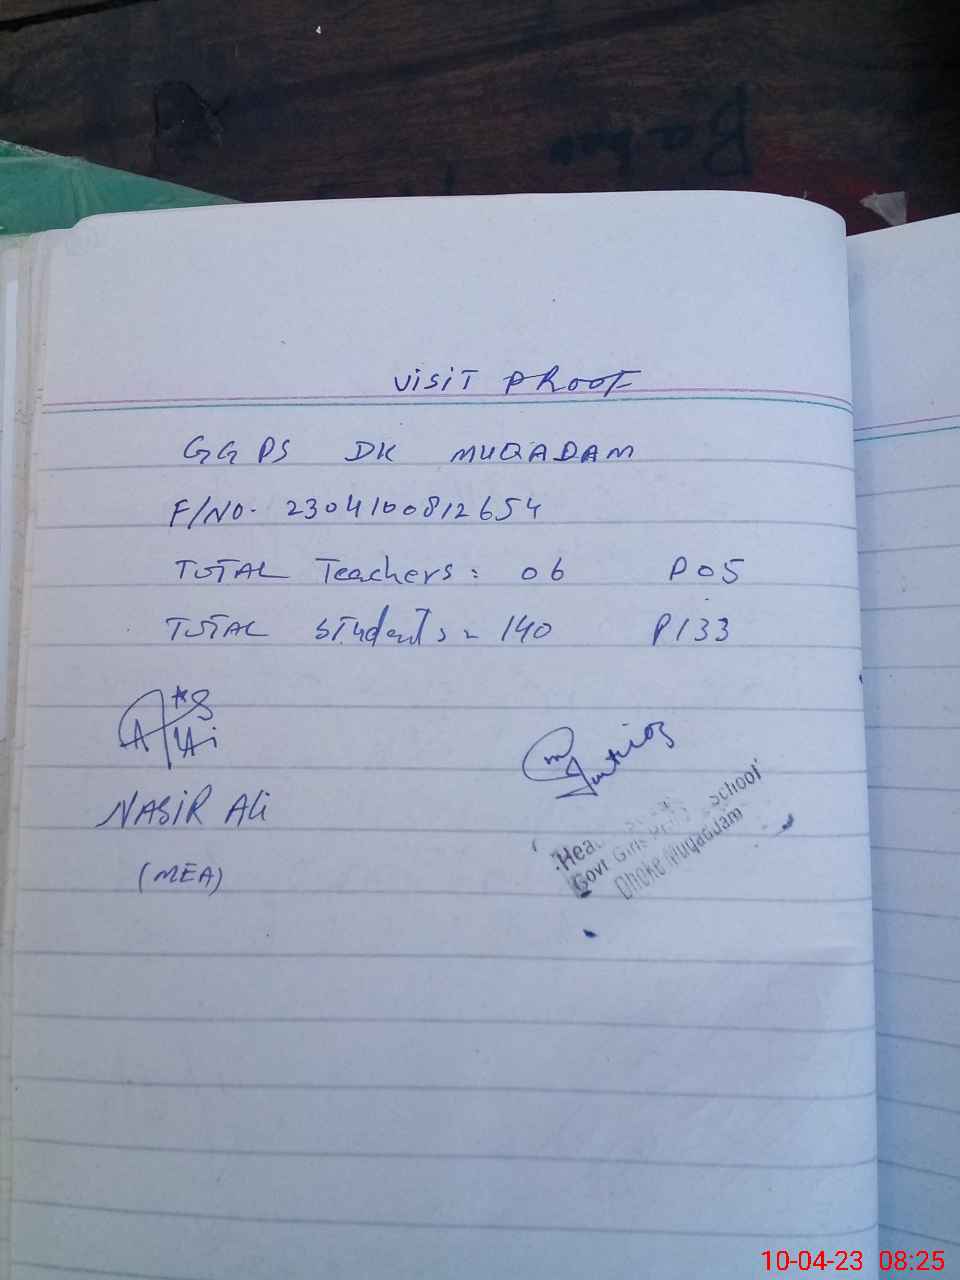 Baber
VISIT PROOF
GGPS DK MUQADAM
F/NO. 2304100812654
TOTAL Teachers: 06 P05
TOTAL Students = 140 P133
NASIR Ali
(MEA)
School
Govt Girls
Dhoke Muqaddam
10-04-23 08:25